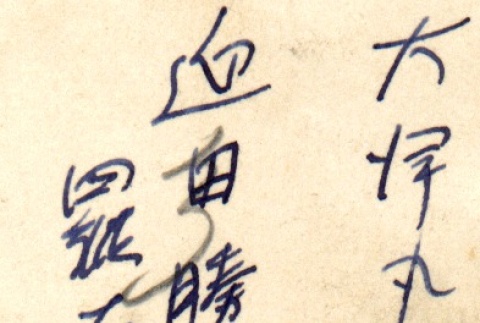 大洋丸
迫田勝
羅